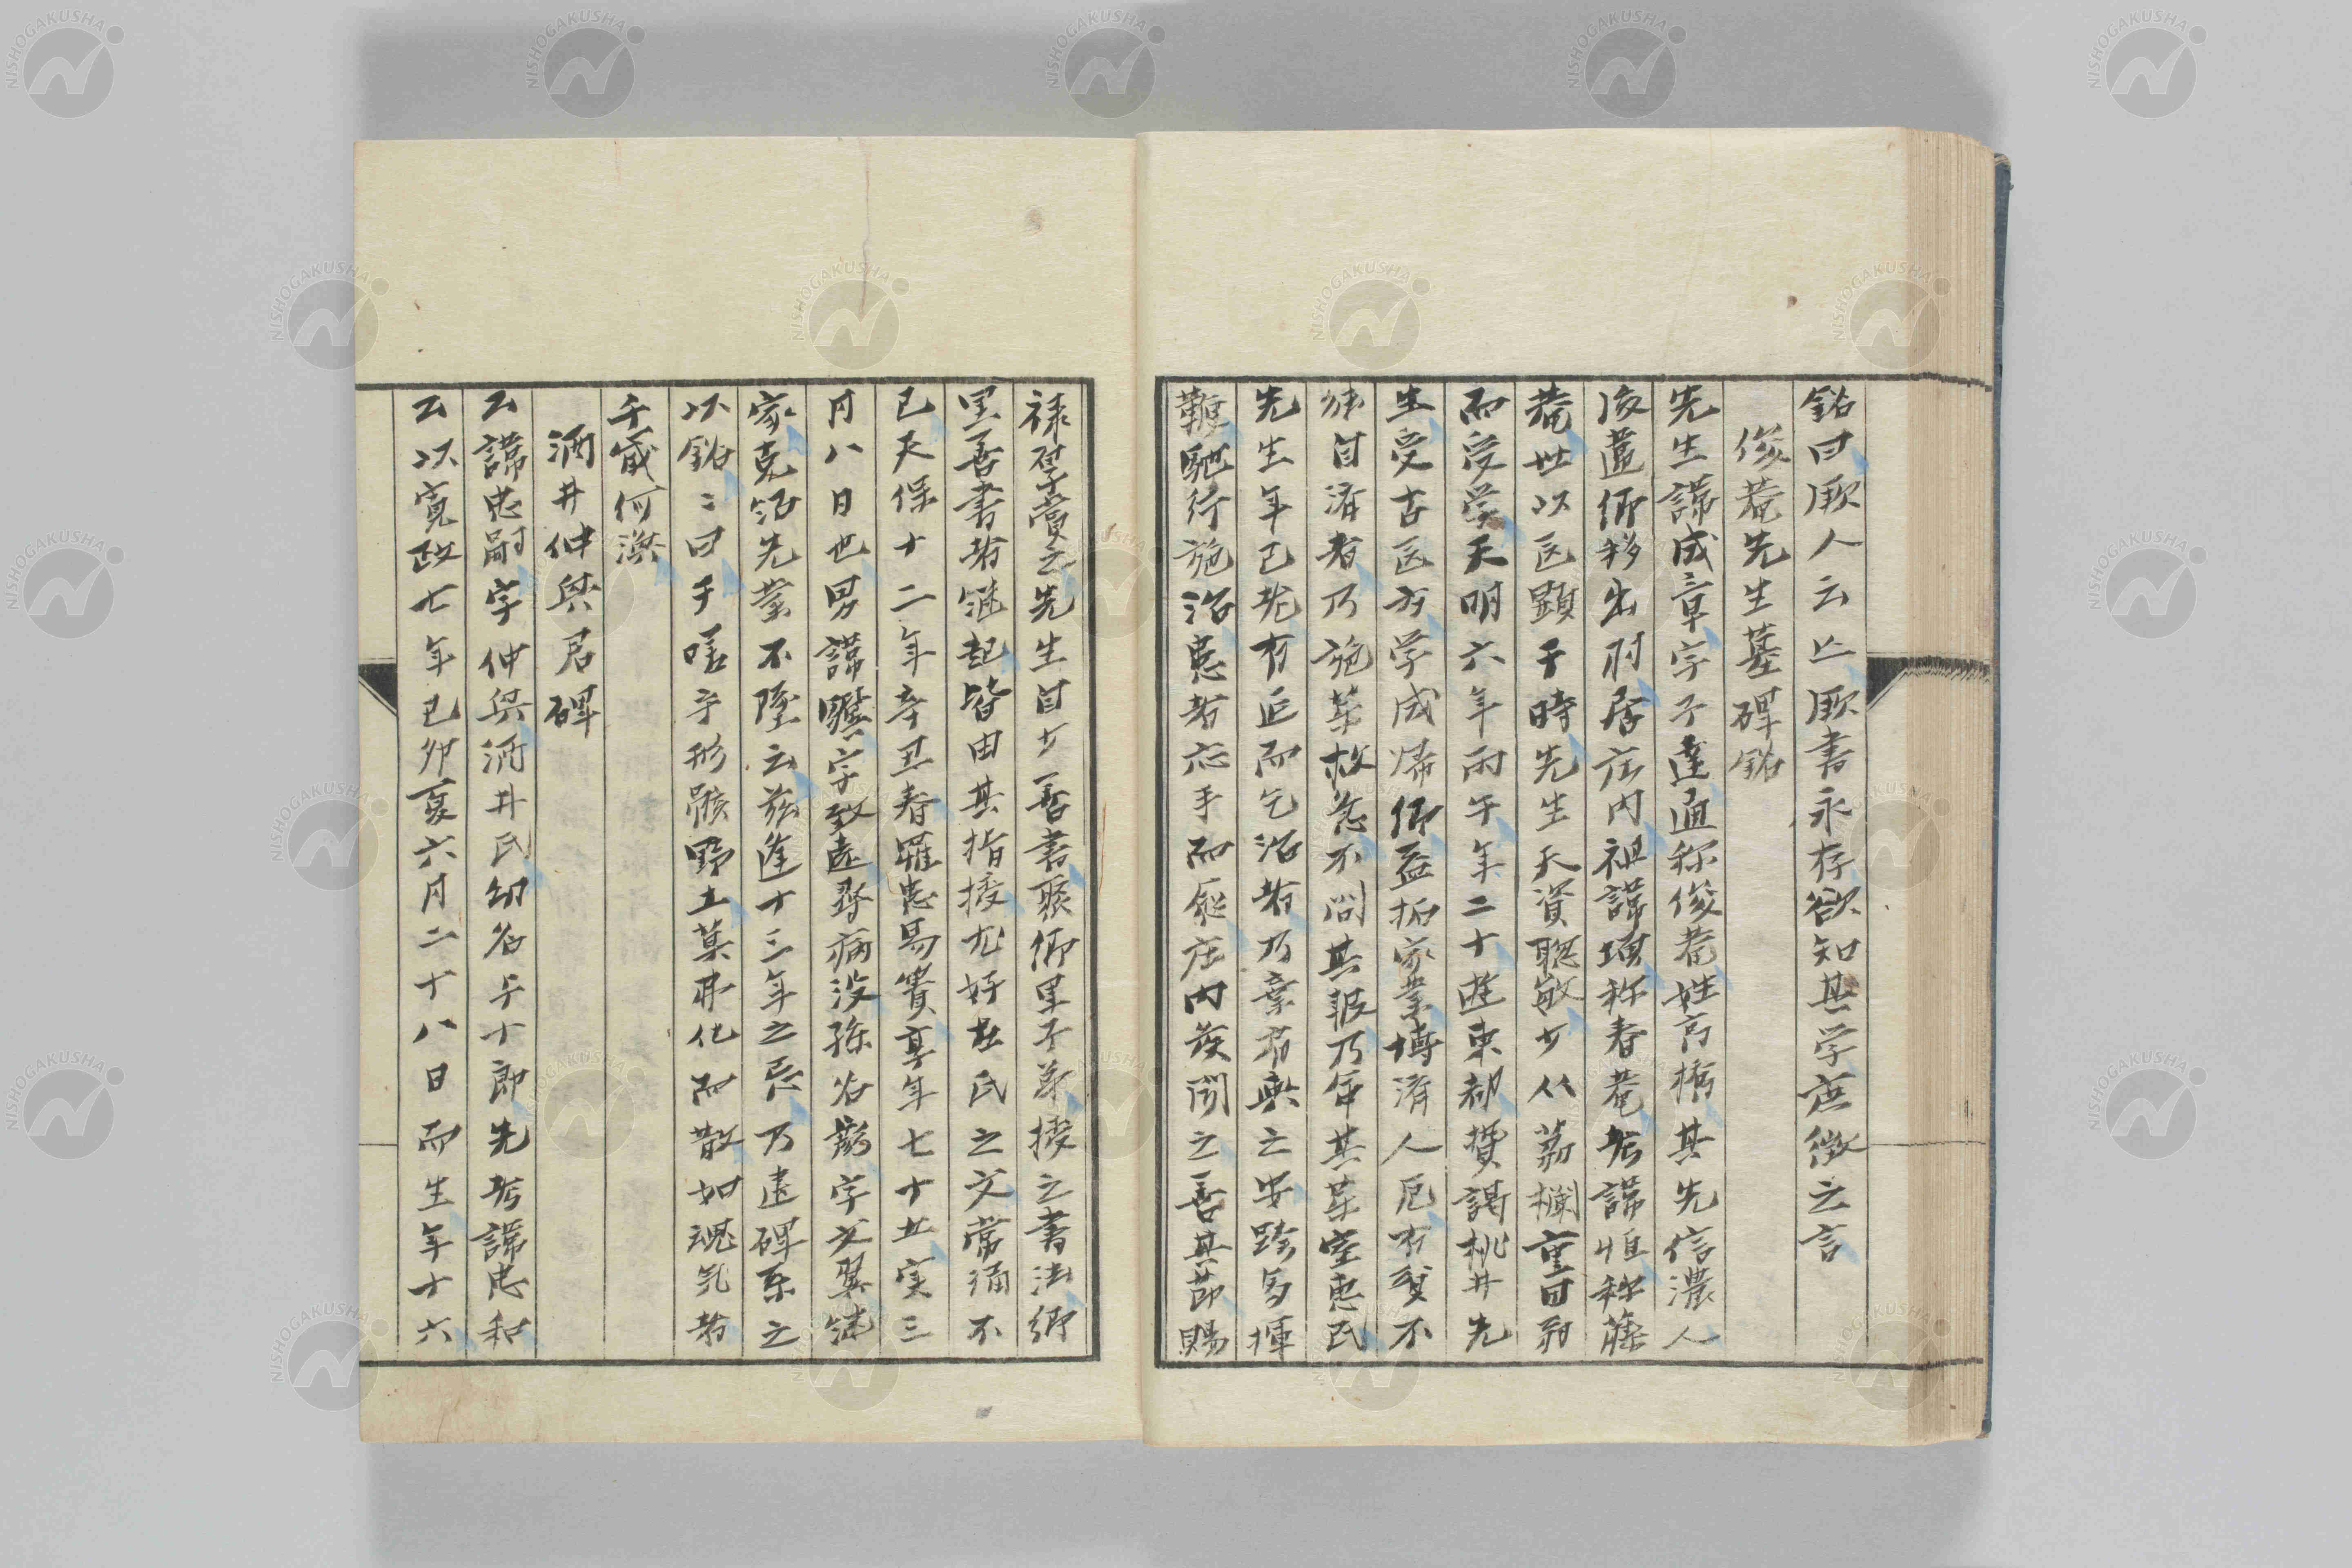 銘曰厥人云亡厥書永存欲知其学庶徴之言
俊菴先生墓碑銘
先生諱成章字子達通称俊菴姓高橋其先信濃人
後遷郷移出羽居庄内祖諱 称春菴考諱恒称藤
菴世以医顕于時先生天資聡敏少从茘欄重田翁
而受学天明六年丙午年二十遊東都贄謁桃井先
生受古医方学成帰郷益拓家業博済人厄有貧不
能自済者乃施薬救急不問其報乃命其薬室恵民
先生年已老有 而乞治者乃棄 与之安跨馬揮
鞭馳行施治患者応手而癒庄内侯聞之善其 賜
禄 賞之先生自少善書聚郷里子弟授之書法郷
里善書者継起皆由其指授尤好左氏之文常誦不
已天保十二年辛丑春罹患易簀享年七十五実三
月八日也男諱驥字致遠尋病没孫名 字文翼継
家克治先業不墜云茲逢十三年之忌乃建碑系之
以銘々曰于嗟乎形骸野土薬 化而散如魂気者
千歳何
酒井仲與君碑
公諱忠嗣字仲與酒井氏幼名与十郎先考諱忠和
公以寛政七年已卯夏六月二十八日而生年十六
NISHOGAKUSHA